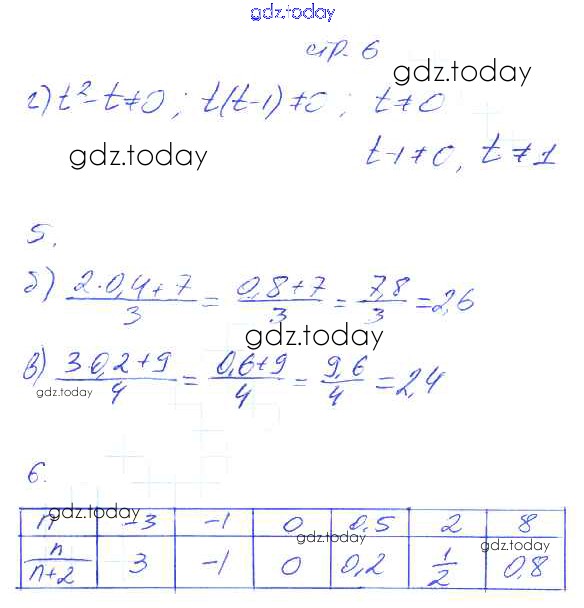 gdz.today
стр. 6
gdz.today
г) t² - t ≠ 0 ; t(t-1) ≠ 0 ; t ≠ 0
gdz.today
t-1 ≠ 0, t ≠ 1
5.
б) (2·0,4+7)/3 = (0,8+7)/3 = 7,8/3 = 2,6
gdz.today
в) (3·0,2+9)/4 = (0,6+9)/4 = 9,6/4 = 2,4
gdz.today
6.
gdz.today
n | -3 | -1 | 0 | 0,5 | 2 | 8
gdz.today gdz.today
n/(n+2) | 3 | -1 | 0 | 0,2 | 1/2 | 0,8